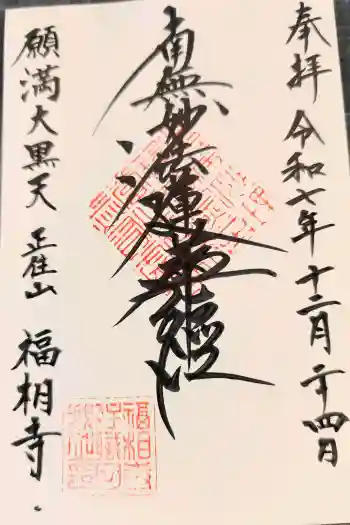 奉拝 令和七年十二月二十四日
南無妙法蓮華經
願満大黒天 正住山 福相寺